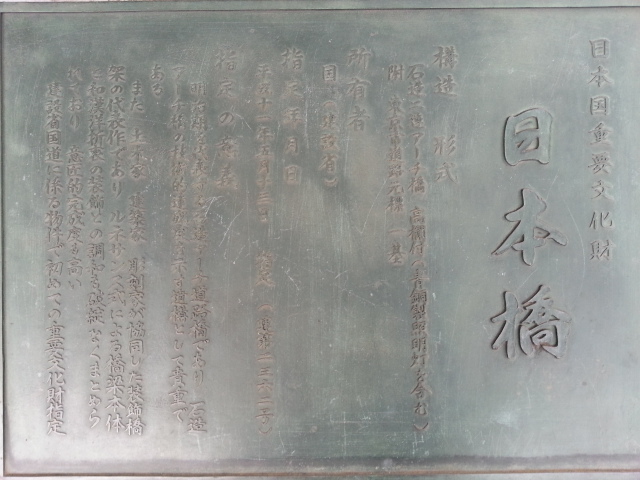 日本国重要文化財
日本橋
構造 形式
石造二連アーチ橋 高欄付 (青銅製照明灯を含む)
附 東京市道路元標 一基
所有者
国 (建設省)
指定年月日
平成十一年五月十三日 (建第二三六二号)
指定の意義
明治期を代表する石造アーチ道路橋であり 石造
アーチ橋の技術的達成度を示す遺構として貴重で
ある
また 土木家 建築家 彫刻家が協同した装飾橋
架の代表作であり ルネサンス式による橋梁本体
と和漢洋折衷の装飾との調和も破綻なくまとめら
れており 意匠的完成度も高い
建設省国道に係る物件で初めての重要文化財指定